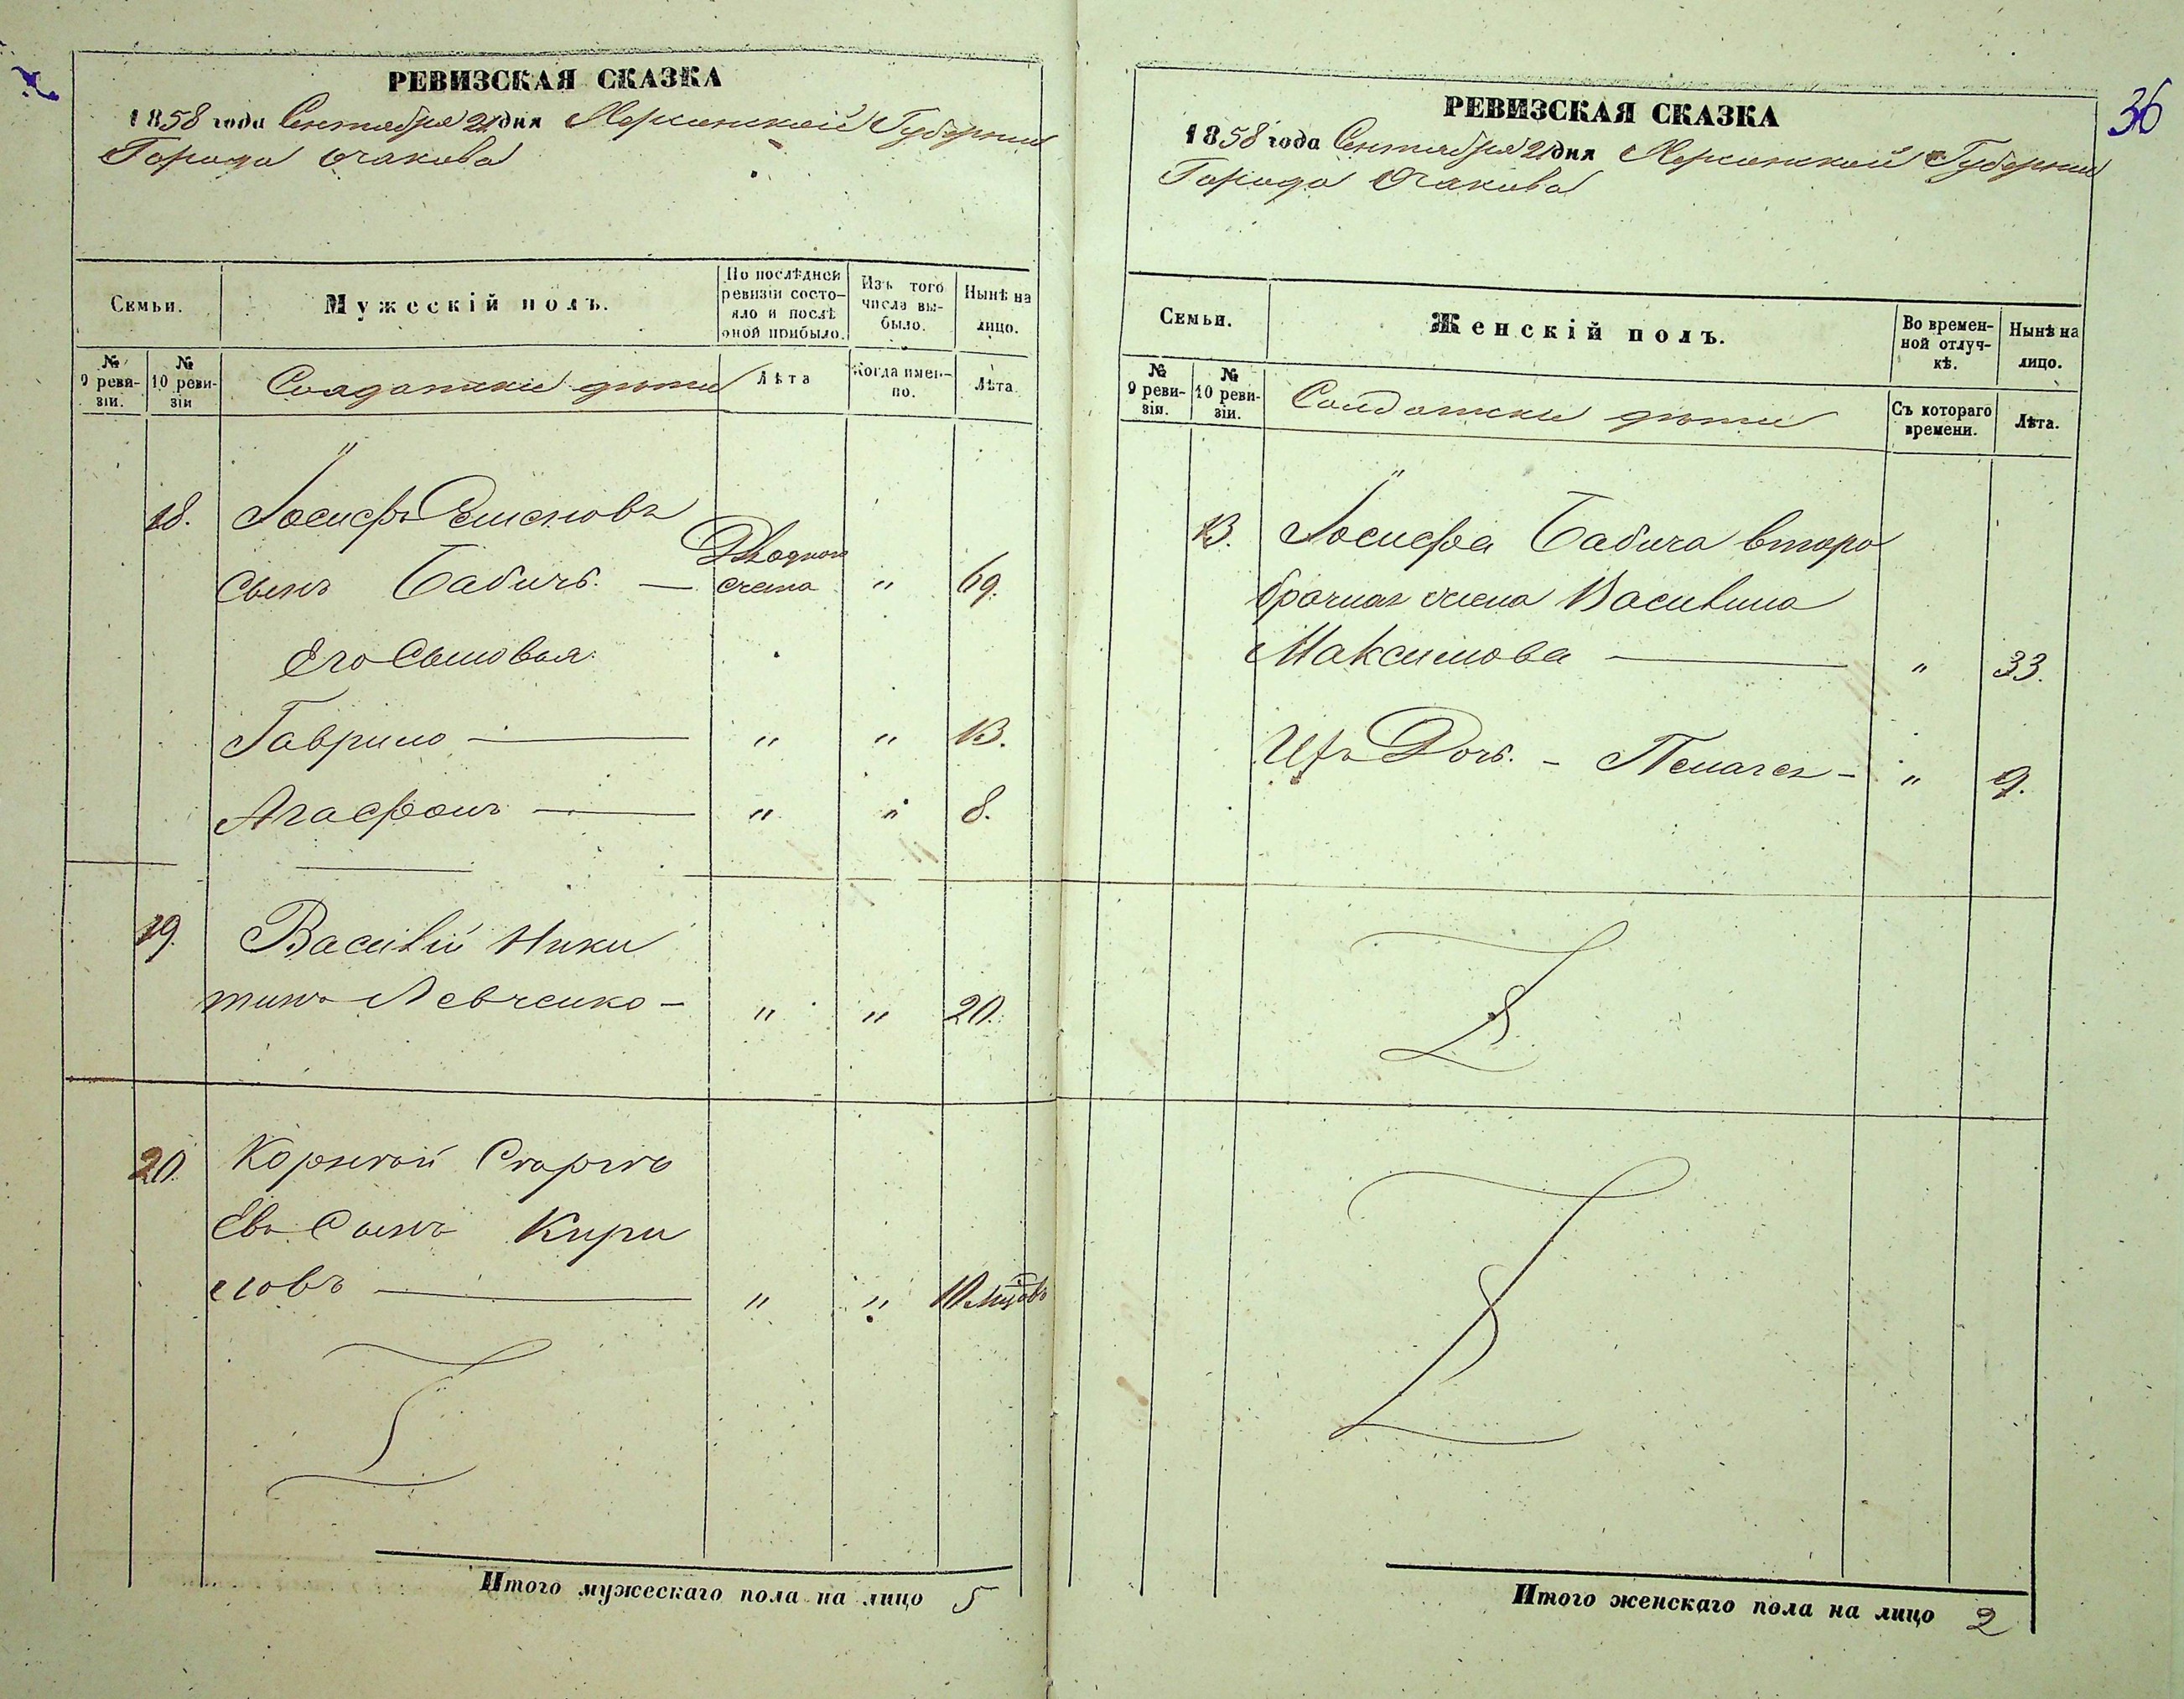 РЕВИЗСКАЯ СКАЗКА
1858 года Сентября 21 дня Херсонской Губернии
Города Очакова
Семьи.
Мужескій полъ.
По послѣдней ревизіи состояло и послѣ оной прибыло.
Изъ того числа выбыло.
Нынѣ на лицо.
№ 9 ревизіи.
№ 10 ревизіи
Солдатскіе дѣти
Лѣта
Когда именно.
Лѣта.
18. Іосифъ Семеновъ
сынъ Бабичъ. — счета " 69.
Его Сыновья
Гаврило — " " 13.
Агафонъ — " " 8.
19. Василій Ники
тинъ Левченко — " " 20.
20 Корнѣй
Евъ Сынъ Кири
ловъ — " " 10
Итого мужескаго пола на лицо 5
36
РЕВИЗСКАЯ СКАЗКА
1858 года Сентября 21 дня Херсонской Губернии
Города Очакова
Семьи.
Женскій полъ.
Во временной отлучкѣ.
Нынѣ на лицо.
№ 9 ревизіи.
№ 10 ревизіи.
Солдатскіе дѣти
Съ котораго времени.
Лѣта.
Іосифа Бабича второ
брачная жена Василина
Максимова — " 33.
Ихъ Дочь. — Пелагея — " 9.
Итого женскаго пола на лицо 2